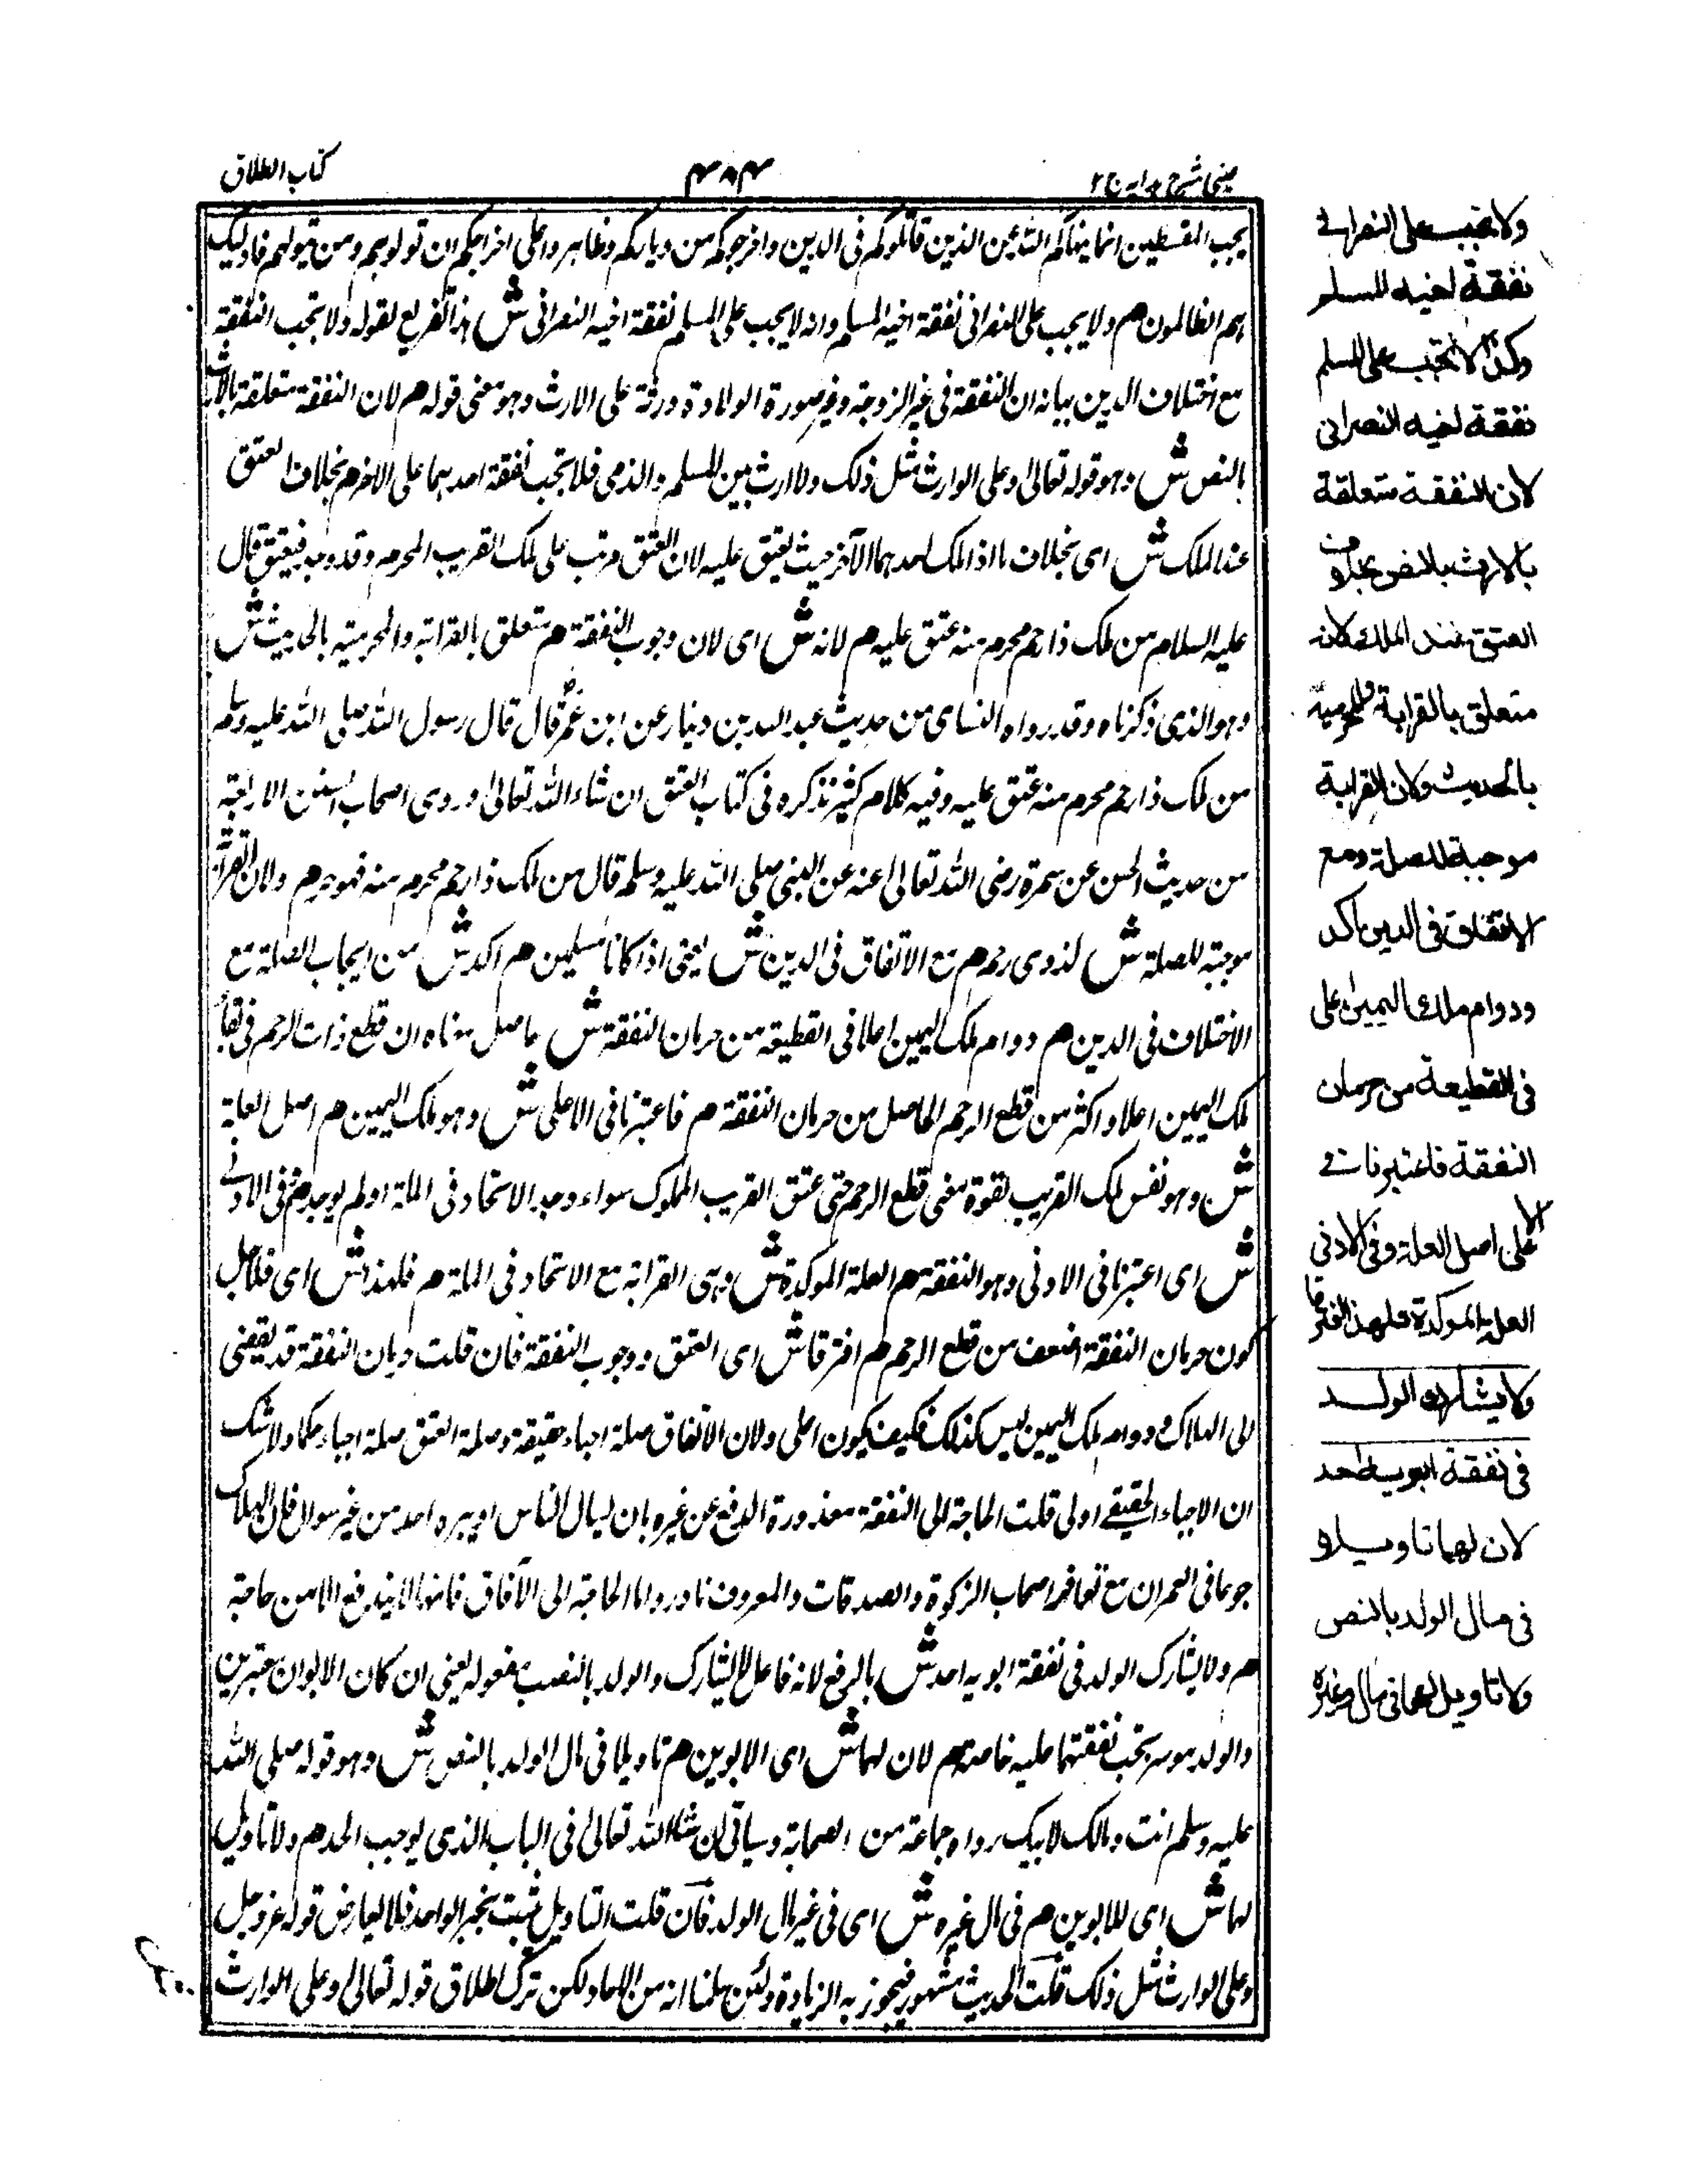 عینی شرح ہدایہ ج ۲
كتاب الطلاق
يحب المقسطين انما ينهاكم الله عن الذين قاتلوكم فى الدين واخرجوكم من دياركم وظاهروا على اخراجكم ان تولوهم ومن يتولهم فاوليك
هم الظالمون م ولا يجب على النصرانى نفقة اخيه المسلم وانه لا يجب على المسلم نفقة اخيه النصرانى ش هذا تفريع لقوله ولا تجب النفقة
مع اختلاف الدين بيانه ان النفقة فى غير الزوجة وغير صورة الولادة مرتبة على الارث وهو معنى قوله م لان النفقة متعلقة بالارث
بالنص ش وهو قوله تعالى وعلى الوارث مثل ذلك ولا ارث بين المسلم والذمى فلا تجب نفقة احدهما على الاخر م بخلاف العتق
عند الملك ش اى بخلاف ما اذا ملك احدهما الآخر حيث يعتق عليه لان العتق مرتب على ملك القريب المحرم وقد وجد فيعتق قال
عليه السلام من ملك ذا رحم محرم منه عتق عليه م لانه ش اى لان وجوب النفقة م متعلق بالقرابة والمحرمية بالحديث ش
وهو الذى ذكرناه وقد رواه النساى من حديث عبد الله بن دينار عن ابن عمر قال قال رسول الله صلى الله عليه وسلم
من ملك ذا رحم محرم منه عتق عليه وفيه كلام كثير نذكره فى كتاب العتق ان شاء الله تعالى وروى اصحاب السنن الاربعة
من حديث الحسن عن سمرة رضى الله تعالى عنه عن النبى صلى الله عليه وسلم قال من ملك ذا رحم محرم منه فهو حر م ولان القرابة
موجبة للصلة ش لذوى رحم م مع الاتفاق فى الدين ش يعنى اذا كانا مسلمين م اكد ش من ايجاب الصلة مع
الاختلاف فى الدين م ودوام ملك اليمين اعلا فى القطيعة من حرمان النفقة ش حاصل معناه ان قطع ذات الرحم فى بقاء
ملك اليمين اعلا واكثر من قطع الرحم الحاصل من حرمان النفقة م فاعتبرنا فى الاعلى ش وهو ملك اليمين م اصل العلة
ش وهو نفس ملك القريب لقوة معنى قطع الرحم حتى عتق القريب المملوك سواء وجد الاتحاد فى الملة او لم يوجد م وفى الادنى
ش اى اعتبرنا فى الادنى وهو النفقة م العلة الموكدة ش وهى القرابة مع الاتحاد فى الملة م فلهذا ش اى فلاجل
كون حرمان النفقة اضعف من قطع الرحم م افترقا ش اى العتق ووجوب النفقة فان قلت حرمان النفقة قد يفضى
الى الهلاك ودوام ملك اليمين ليس كذلك فكيف يكون اعلى ولان الانفاق صلة احياء حقيقة وصلة العتق صلة احياء حكما ولا شك
ان الاحياء الحقيقے اولى قلت الحاجة الى النفقة مقدورة الدفع عن غيره بان ليسال الناس او يبره احد من غير سوال فان الهلاك
جوعا فى العمران مع توافر اصحاب الزكوة والصدقات والمعروف نادر واما الحاجة الى الآفاق فانها لا يندفع الا من حاجة
م ولا يشارك الولد فى نفقة ابويه احد ش بالرفع لانه فاعل لا يشارك والولد بالنصب مفعوله يعنى ان كان الابوان معتبرين
والولد موسر تجب نفقتهما عليه خاصة م لان لهما ش اى الابوين م تاويلا فى مال الولد بالنص ش وهو قوله صلى الله
عليه وسلم انت ومالك لابيك رواه جماعة من الصحابة وسياتى ان شاء الله تعالى فى الباب الذى يوجب الحد م ولا تاويل
لهما ش اى للابوين م فى مال غيره ش اى فى غير مال الولد فان قلت التاويل ثبت بخبر الواحد فلا يعارض قوله عز وجل
وعلى الوارث مثل ذلك قلت الحديث مشهور فيجوز به الزيادة ولئن سلمنا انه من الاحاد ولكن ترك اطلاق قوله تعالى وعلى الوارث
ولا تجب على النصرانے
نفقة اخيه المسلم
وكذا لا تجب على المسلم
نفقة اخيه النصرانى
لان النفقة متعلقة
بالارث بالنص بخلاف
العتق عند الملك لانه
متعلق بالقرابة والمحرمية
بالحديث ولان القرابة
موجبة للصلة ومع
الاتفاق فى الدين اكد
ودوام ملك اليمين اعلى
فى القطيعة من حرمان
النفقة فاعتبرنا فے
الاعلى اصل العلة وفى الادنى
العلة الموكدة فلهذا افترقا
ولا يشارك الولد
فى نفقة ابويه احد
لان لهما تاويلا
فى مال الولد بالنص
ولا تاويل لهما فى مال غيره